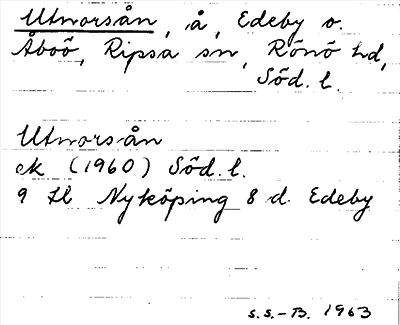 Utnorsån, å, Edeby o.
Åboö, Ripsa sn, Rönö hd,
Söd. l.
Utnorsån
ek (1960) Söd. l.
9 H Nyköping 8 d Edeby
s.s.-B. 1963